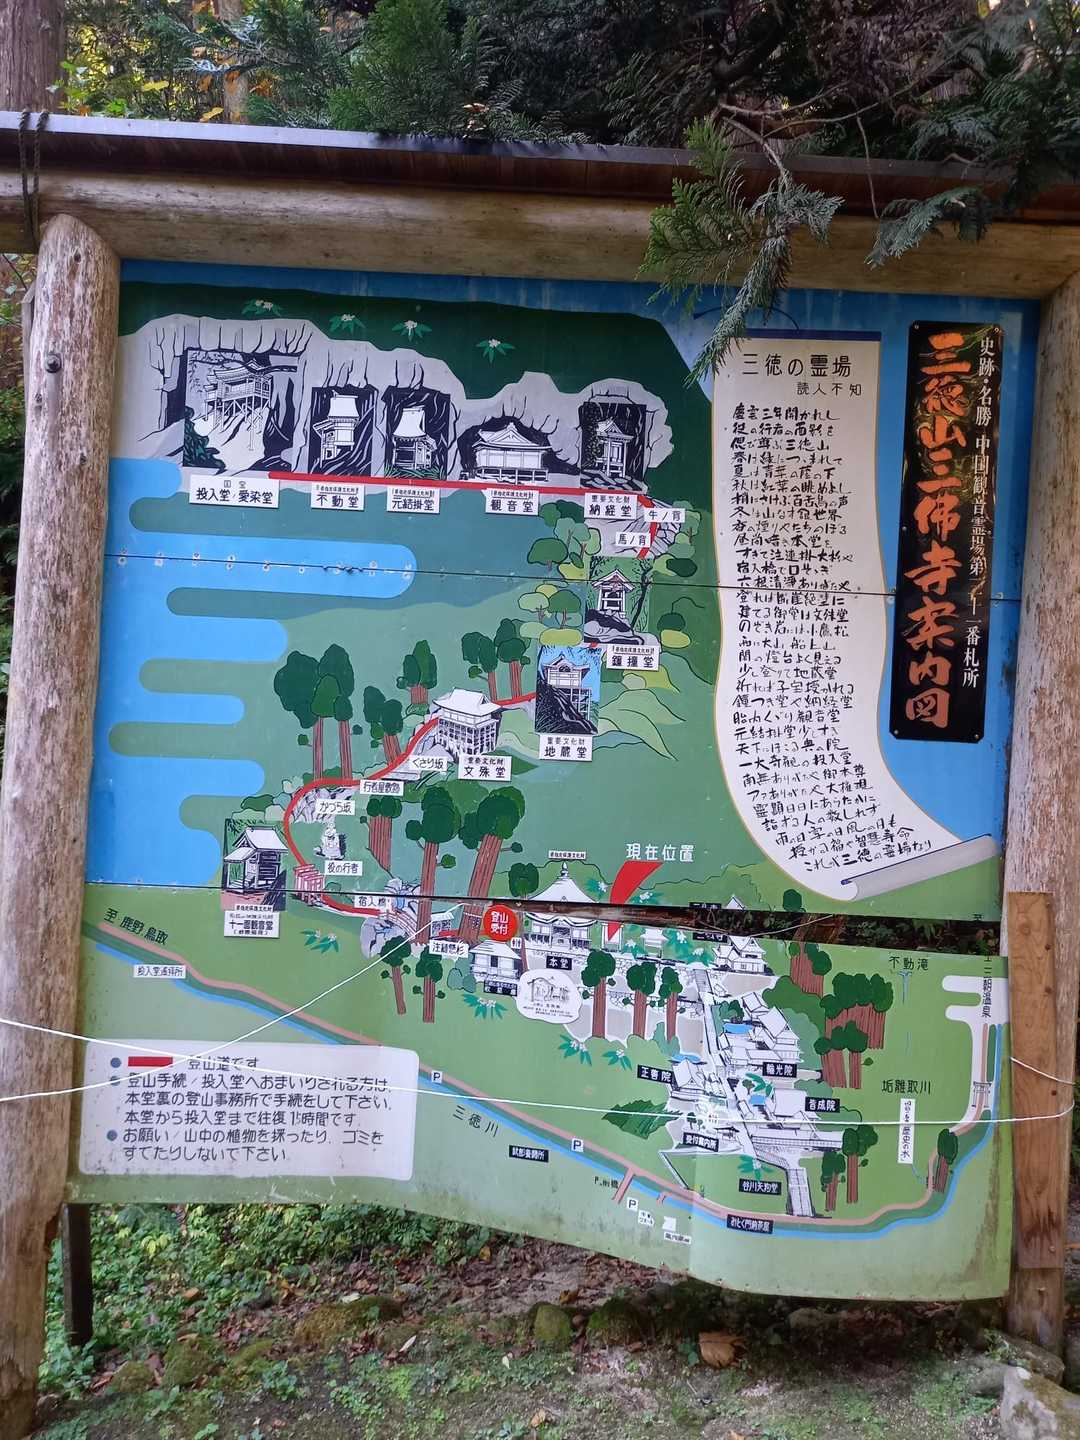 史跡・名勝 中国観音霊場第三十一番札所
三徳山三佛寺案内図
三徳の霊場
読人不知
慶雲三年開かれし
役の行者の面影を
偲び尊ぶ三徳山
春は緑につゝまれて
夏は青葉の蔭の下
秋は紅葉の眺めよし
梢にさけぶ百舌鳥の声
冬は山なす銀世界
香の煙りくちたのぼる
すぎて注連掛大杉や
宿入橋で口そゝぎ
六根清浄ありがたや
登れば断崖絶壁に
建てる御堂は文殊堂
のぞき岩には小鷹松
西に大山船上山
関の燈台よく見えコ
少し登りて地蔵堂
祈れば子宝授かれる
鐘つき堂や納経堂
胎内くぐり観音堂
元結掛堂少しすぎ
天下にほこる奥の院
一大奇観の投入堂
南無ありがたや御本尊
アヽありがたや大権現
霊顕日日にあらたかに
詣する人の数しれず
雨の日雪の日風の日も
授かる福や智慧寿命
これぞ三徳の霊場なり
国宝
投入堂/愛染堂
不動堂
県指定保護文化財
元結掛堂
県指定保護文化財
観音堂
重要文化財
納経堂
牛ノ背
馬ノ背
県指定保護文化財
鐘撞堂
重要文化財
地蔵堂
重要文化財
文殊堂
くさり坂
行者屋敷跡
かづら坂
役の行者
宿入橋
県指定保護文化財
十一面観音堂
登山
受付
現在位置
県指定保護文化財
本堂
至 鹿野 鳥取
投入堂遥拝所
正善院
輪光院
皆成院
受付案内所
谷川天狗堂
みとく門前茶屋
三徳川
P
P
P
不動滝
三朝温泉
垢離取川
登山道です
登山手続/投入堂へおまいりされる方は、
本堂裏の登山事務所で手続をして下さい。
本堂から投入堂まで往復1½時間です。
お願い/山中の植物を採ったり、ゴミを
すてたりしないで下さい。